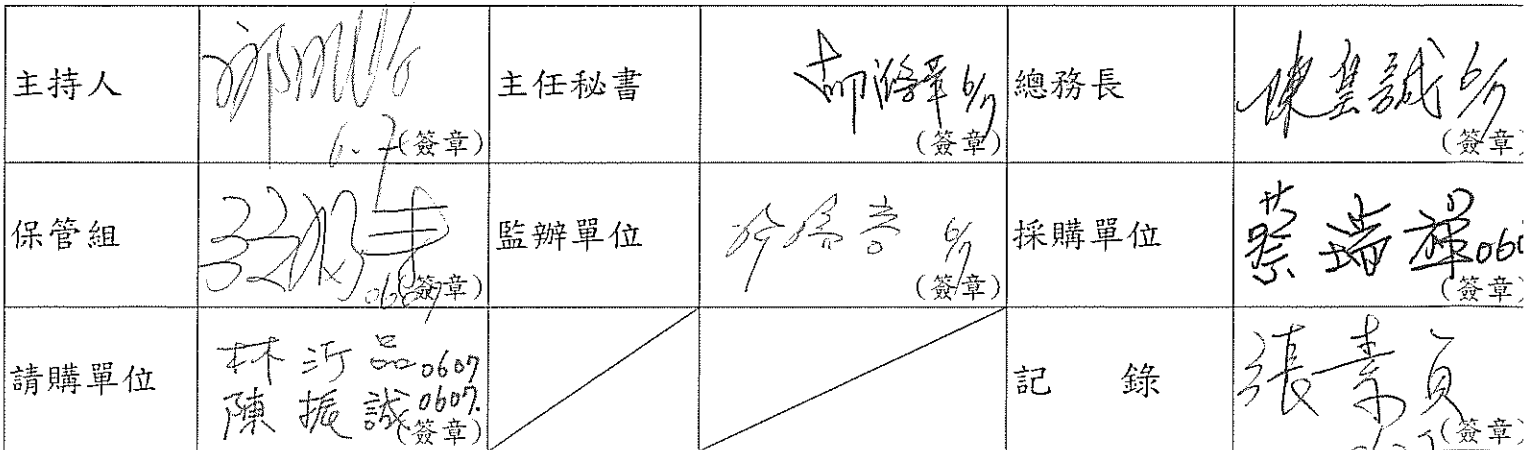 主持人
6.7(簽章)
主任秘書
6/7
(簽章)
總務長
陳皇誠 6/7
(簽章)
保管組
0607
(簽章)
監辦單位
6/7
(簽章)
採購單位
蔡瑞禪060
(簽章)
請購單位
林沂品0607
陳振誠0607.
(簽章)
記 錄
張素貞
(簽章)